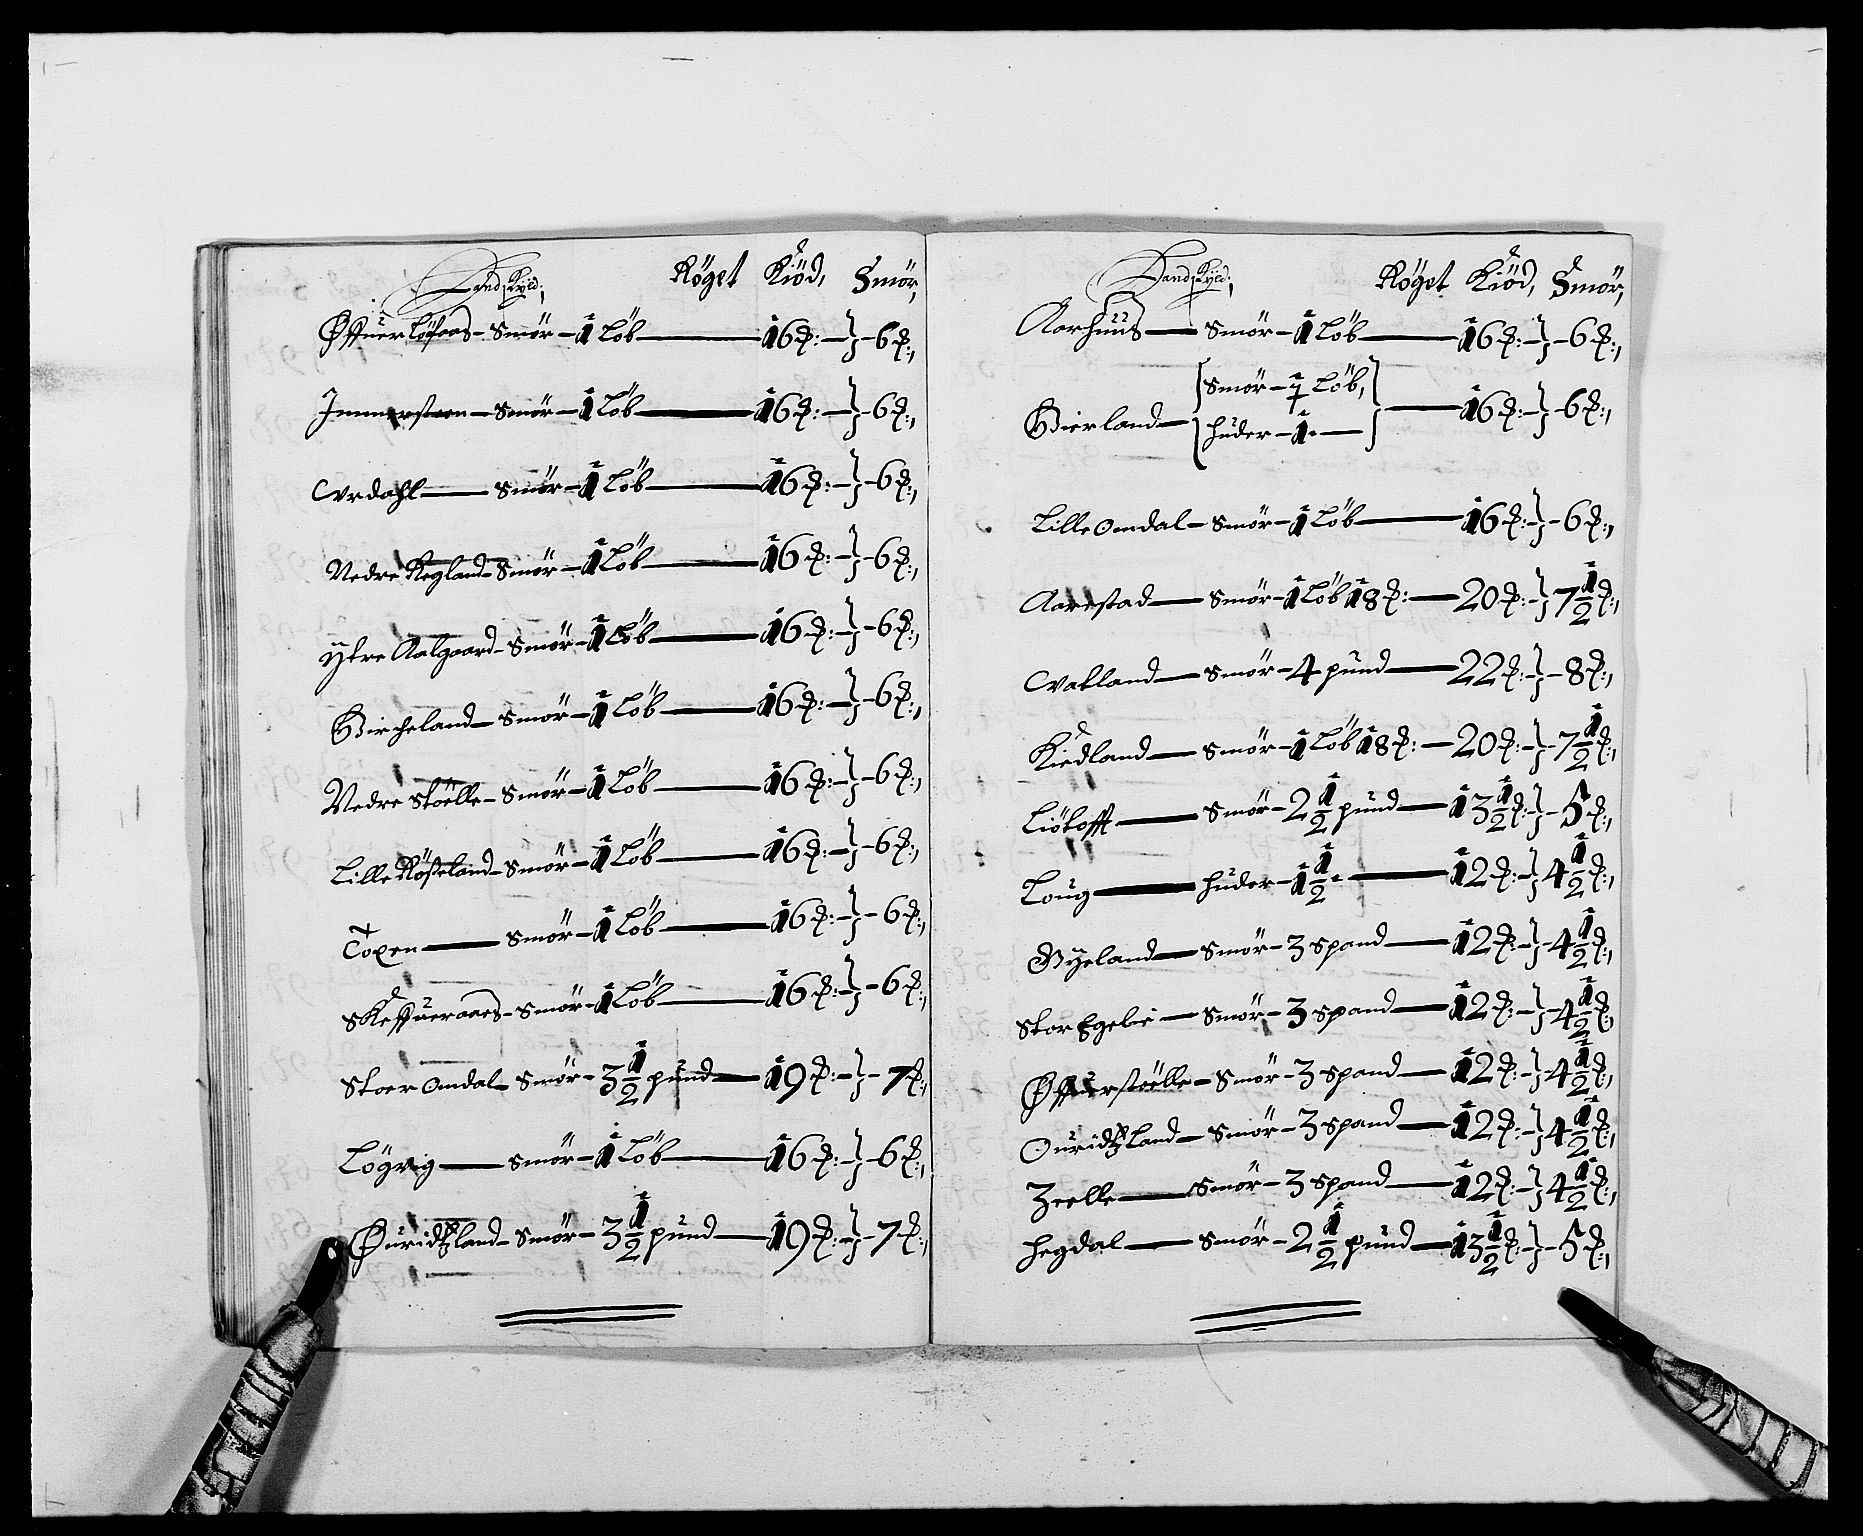 Landskyld; Röget Kiöd, Smör,
Øffuer Löfaas – Smör – 1 Löb — 16 ℔: –} – 6 ℔:,
Immersteen – Smör – 1 Löb — 16 ℔: –} – 6 ℔:,
Ordahl — Smör – 1 Löb — 16 ℔: –} – 6 ℔:,
Nedre Regland – Smör – 1 Löb — 16 ℔: –} – 6 ℔:,
Ytre Aalgaard – Smör – 1 Löb — 16 ℔: –} – 6 ℔:,
Bircheland – Smör – 1 Löb — 16 ℔: –} – 6 ℔:,
Nedre Stöelle – Smör – 1 Löb — 16 ℔: –} – 6 ℔:,
Lille Rößeland – Smör – 1 Löb — 16 ℔: –} – 6 ℔:,
Topen — Smör – 1 Löb — 16 ℔: –} – 6 ℔:,
Skeffueraaes – Smör – 1 Löb — 16 ℔: –} – 6 ℔:,
Stoer Omdal – Smör – 3 1/2 pund — 19 ℔: –} – 7 ℔:,
Lögvig — Smör – 1 Löb — 16 ℔: –} – 6 ℔:,
Øuridtzland – Smör – 3 1/2 pund — 19 ℔: –} – 7 ℔:,
Landskyld; Röget Kiöd, Smör,
Aarhuus — Smör – 1 Löb — 16 ℔: –} – 6 ℔:,
Bierland – { Smör – Löb,
huder – 1 · — } — 16 ℔: –} – 6 ℔:,
Lille Omdal – Smör – 1 Löb — 16 ℔: –} – 6 ℔:,
Aarestad — Smör – 1 Löb 18 ℔: — 20 ℔: –} 7 1/2 ℔:,
Vatland — Smör – 4 pund — 22 ℔: –} – 8 ℔:,
Kiedland — Smör – 1 Löb 18 ℔: — 20 ℔: –} – 7 1/2 ℔:,
Liötofft — Smör – 2 1/2 pund — 13 1/2 ℔: –} – 5 ℔:,
Loug — huder – 1 1/2 · — 12 ℔: –} 4 1/2 ℔:,
Byeland — Smör – 3 spand — 12 ℔: –} – 4 1/2 ℔:,
Stor Egelie — Smör – 3 spand — 12 ℔: –} – 4 1/2 ℔:
Øffuerstöelle – Smör – 3 spand — 12 ℔: –} – 4 1/2 ℔:,
Ouridtzland – Smör – 3 spand — 12 ℔: –} 4 1/2 ℔:,
Zeelle — Smör – 3 spand — 12 ℔: –} 4 1/2 ℔:,
hegdal — Smör – 2 1/2 pund — 13 1/2 ℔: –} – 5 ℔:,